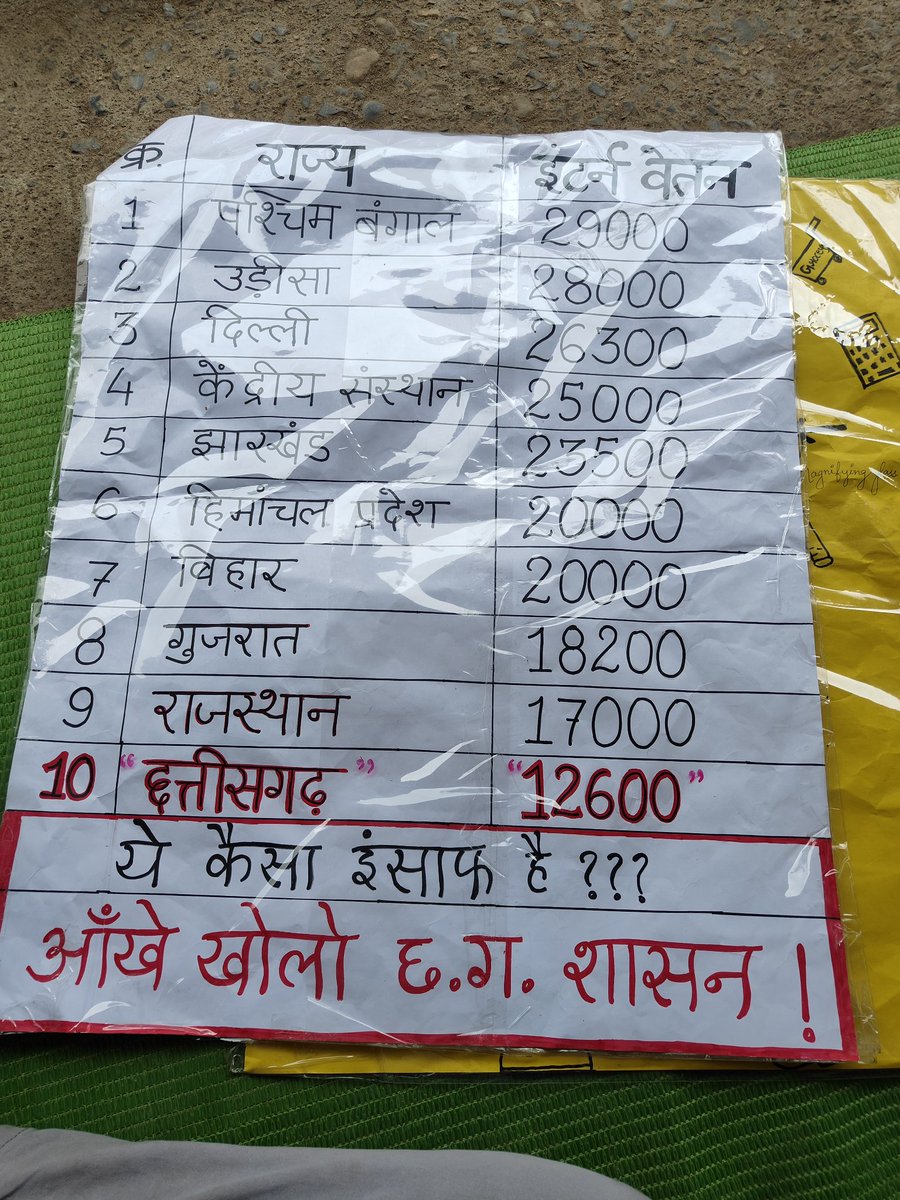 क्र. राज्य इंटर्न वेतन
1 पश्चिम बंगाल 29000
2 उड़ीसा 28000
3 दिल्ली 26300
4 केंद्रीय संस्थान 25000
5 झारखंड 23500
6 हिमांचल प्रदेश 20000
7 बिहार 20000
8 गुजरात 18200
9 राजस्थान 17000
10 “छत्तीसगढ़” “12600”
ये कैसा इंसाफ है ???
आँखे खोलो छ.ग. शासन !
Grocery
Magnifying